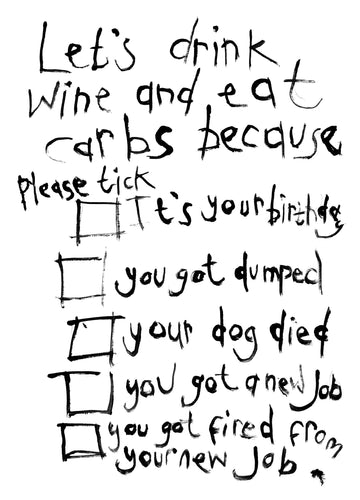 Let's drink
wine and eat
carbs because
please tick
It's your birthday
you got dumped
your dog died
you got a new job
you got fired from
your new job.